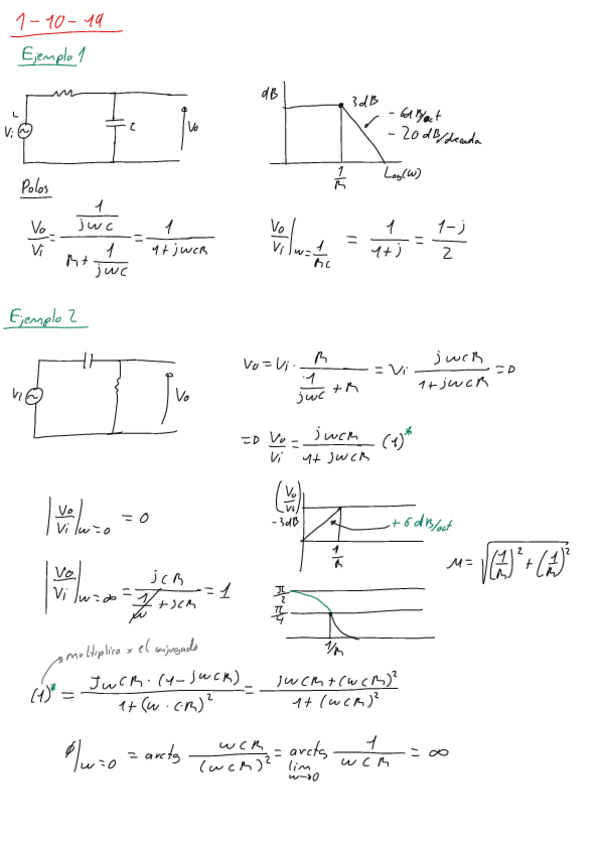 1-10-19
Ejemplo 1
Vi
C
Vo
dB
3dB
-6dB/oct
-20dB/decada
1/R
Log(w)
Polos
Vo/Vi = (1/(jwc))/(R+1/(jwc)) = 1/(1+jwcR)
Vo/Vi|w=1/RC = 1/(1+j) = (1-j)/2
Ejemplo 2
Vi
Vo
Vo = Vi · R/(1/(jwc)+R) = Vi jwcR/(1+jwcR) =D
=D Vo/Vi = jwcR/(1+jwcR) (1)*
|Vo/Vi|w=0 = 0
(Vo/Vi)
-3dB
+6dB/oct
1/R
M = √((1/R)²+(1/R)²)
|Vo/Vi|w=∞ = jcR/(1/w+jcR) = 1
π/2
π/4
1/R
multiplico x el conjugado
(1)* = JwCR·(1-jwCR)/(1+(w·CR)²) = (jwCR+(wCR)²)/(1+(wCR)²)
ϕ|w=0 = arctg wCR/(wCR)² = arctg lim w→0 1/(wCR) = ∞